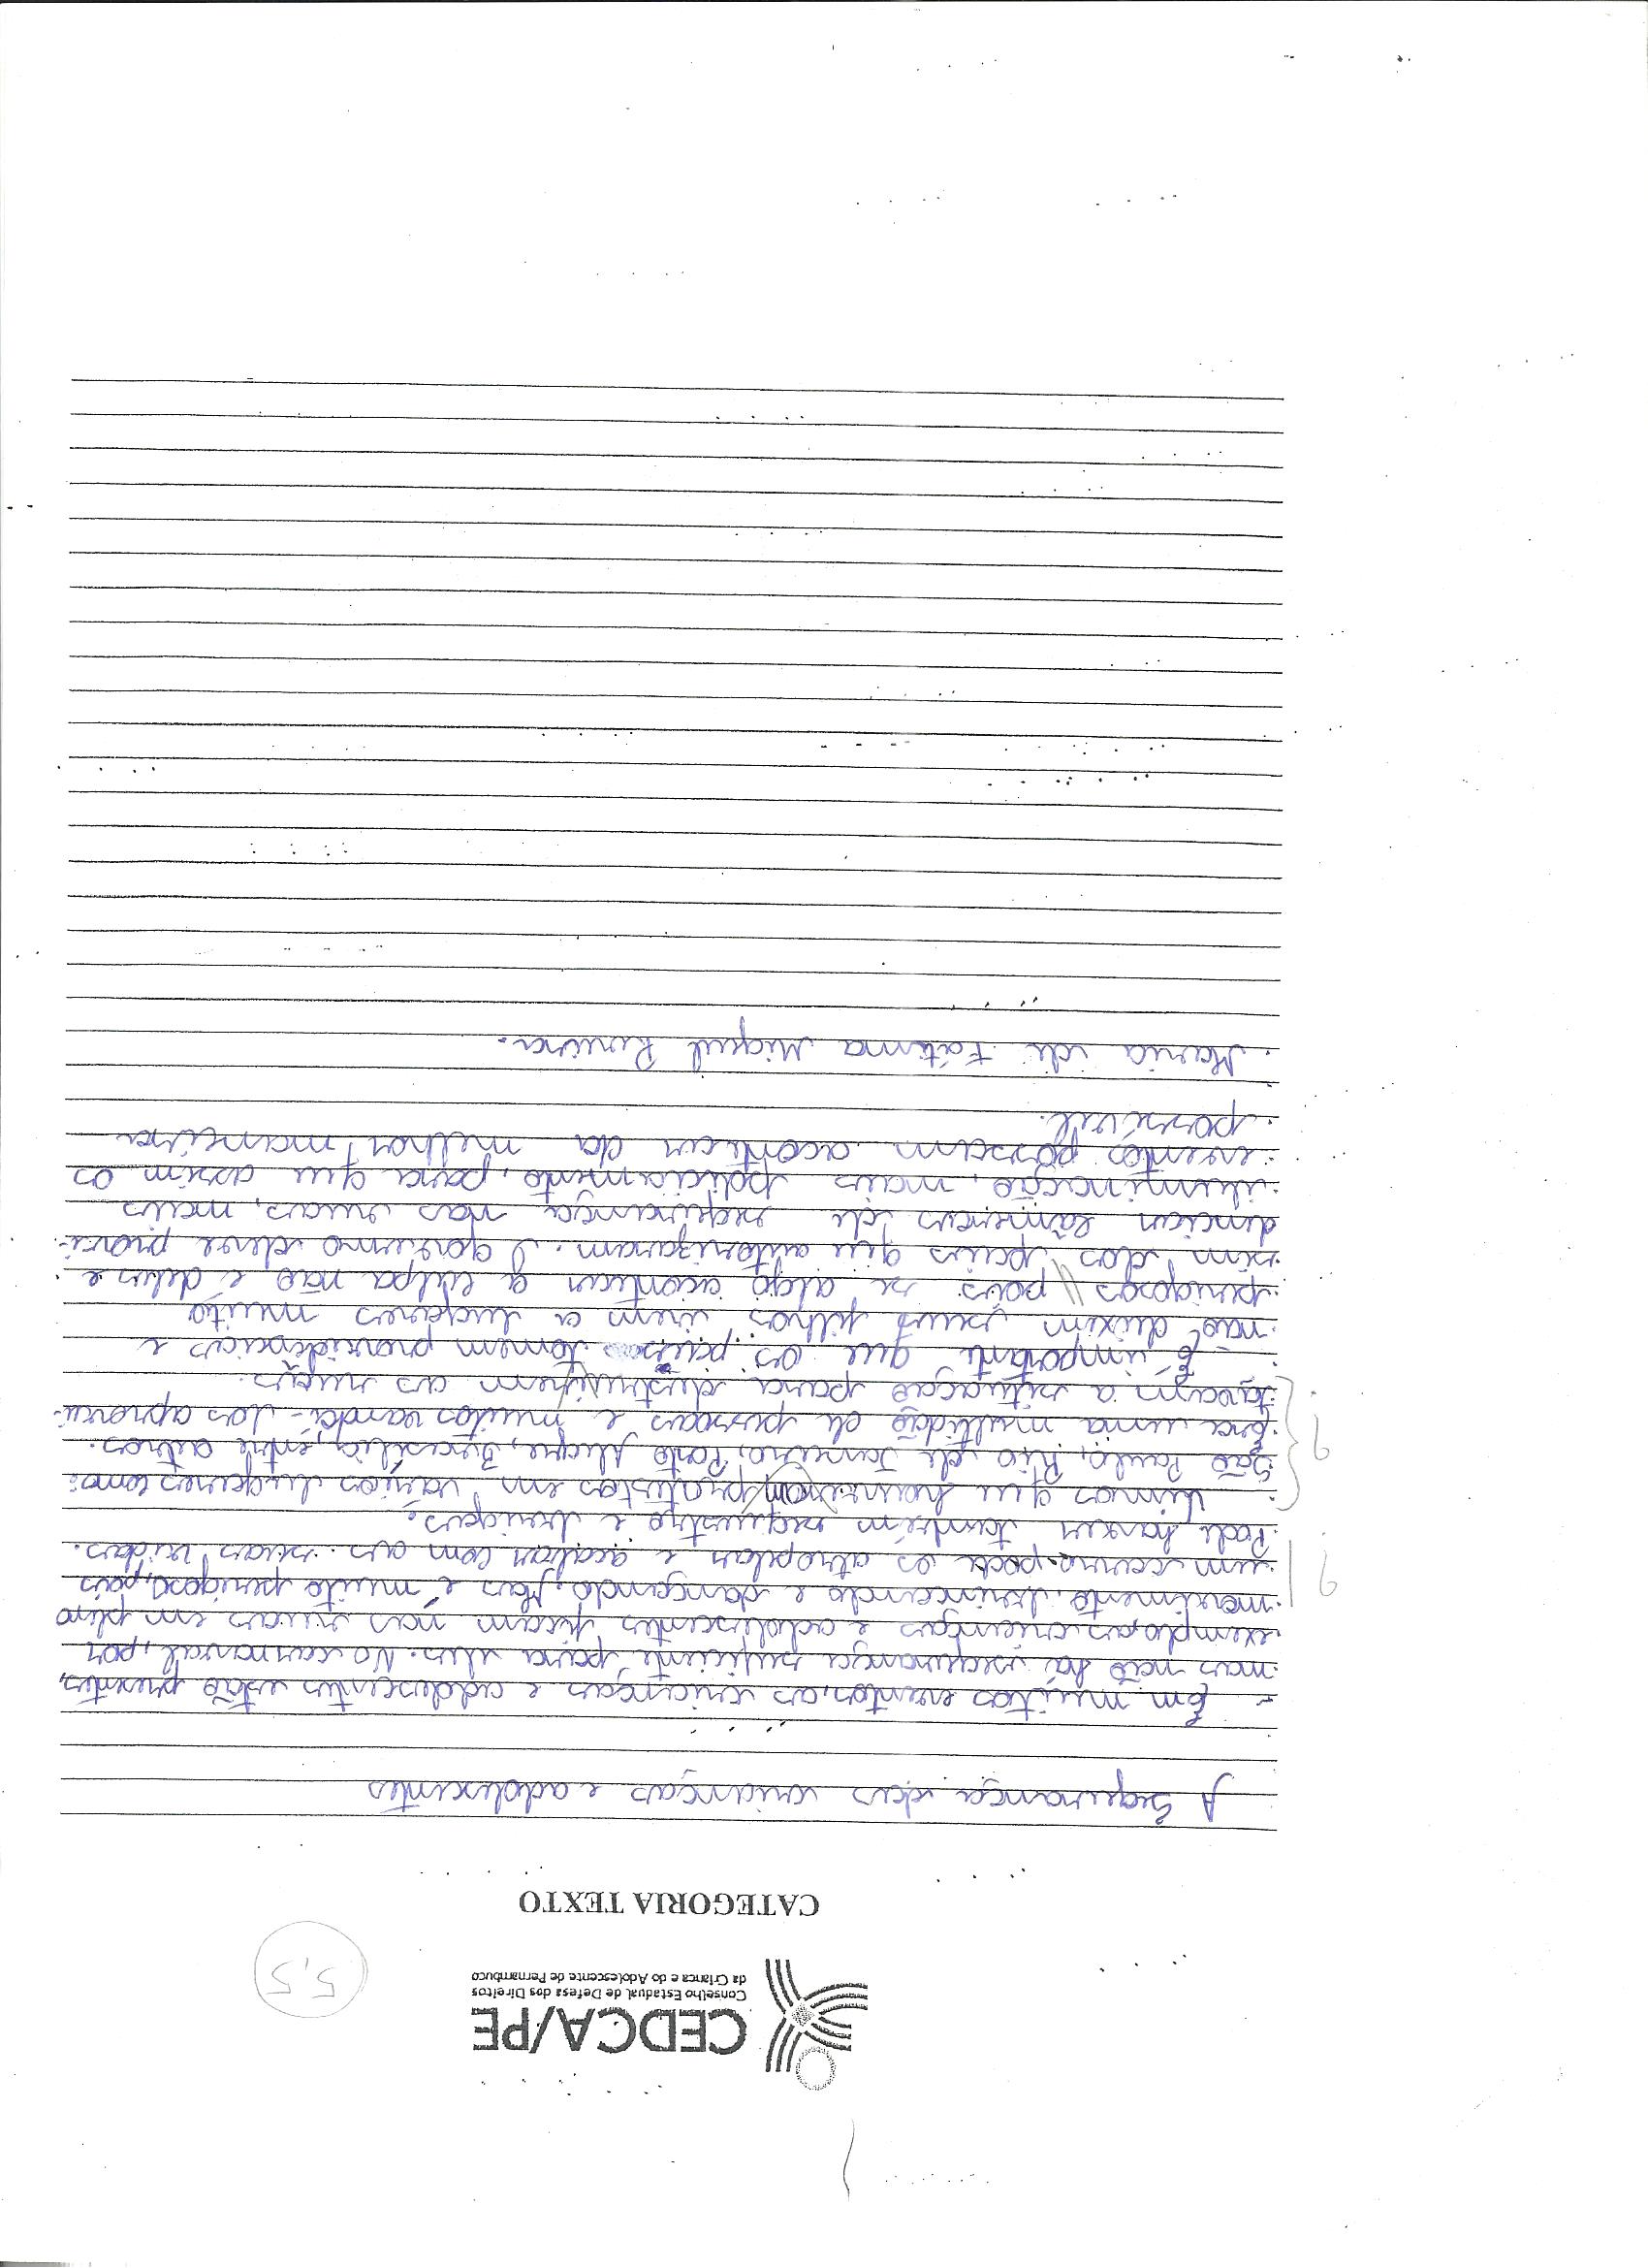 CEDCA/PE
Conselho Estadual de Defesa dos Direitos
da Criança e do Adolescente de Pernambuco
5,5
CATEGORIA TEXTO
A Segurança das crianças e adolescentes
Em muitos eventos, as crianças e adolescentes estão presentes,
mas não há segurança suficiente para eles. No carnaval, por
exemplo, as crianças e adolescentes ficam nas ruas em pleno
movimento, brincando e dançando. Mas é muito perigoso, pois
um carro pode os atropelar e acabar com as suas vidas.
Pode haver também sequestro e drogas.
?
Vimos que houveram protestos em vários lugares como:
São Paulo, Rio de Janeiro, Porto Alegre, Brasília, entre outros.
Era uma multidão de pessoas e muitos vanda-los aprovei-
tavam a situação para destruirem as ruas.
?
É importante que os pais tomem providências e
não deixem seus filhos irem a lugares muito
perigosos // pois se algo acontecer a culpa não é deles e
sim dos pais que autorizaram. O governo deve provi-
denciar câmeras de segurança nas ruas, mais
iluminação, mais policiamento, para que assim os
eventos possam acontecer da melhor maneira
possível.
Maria de Fátima Miguel